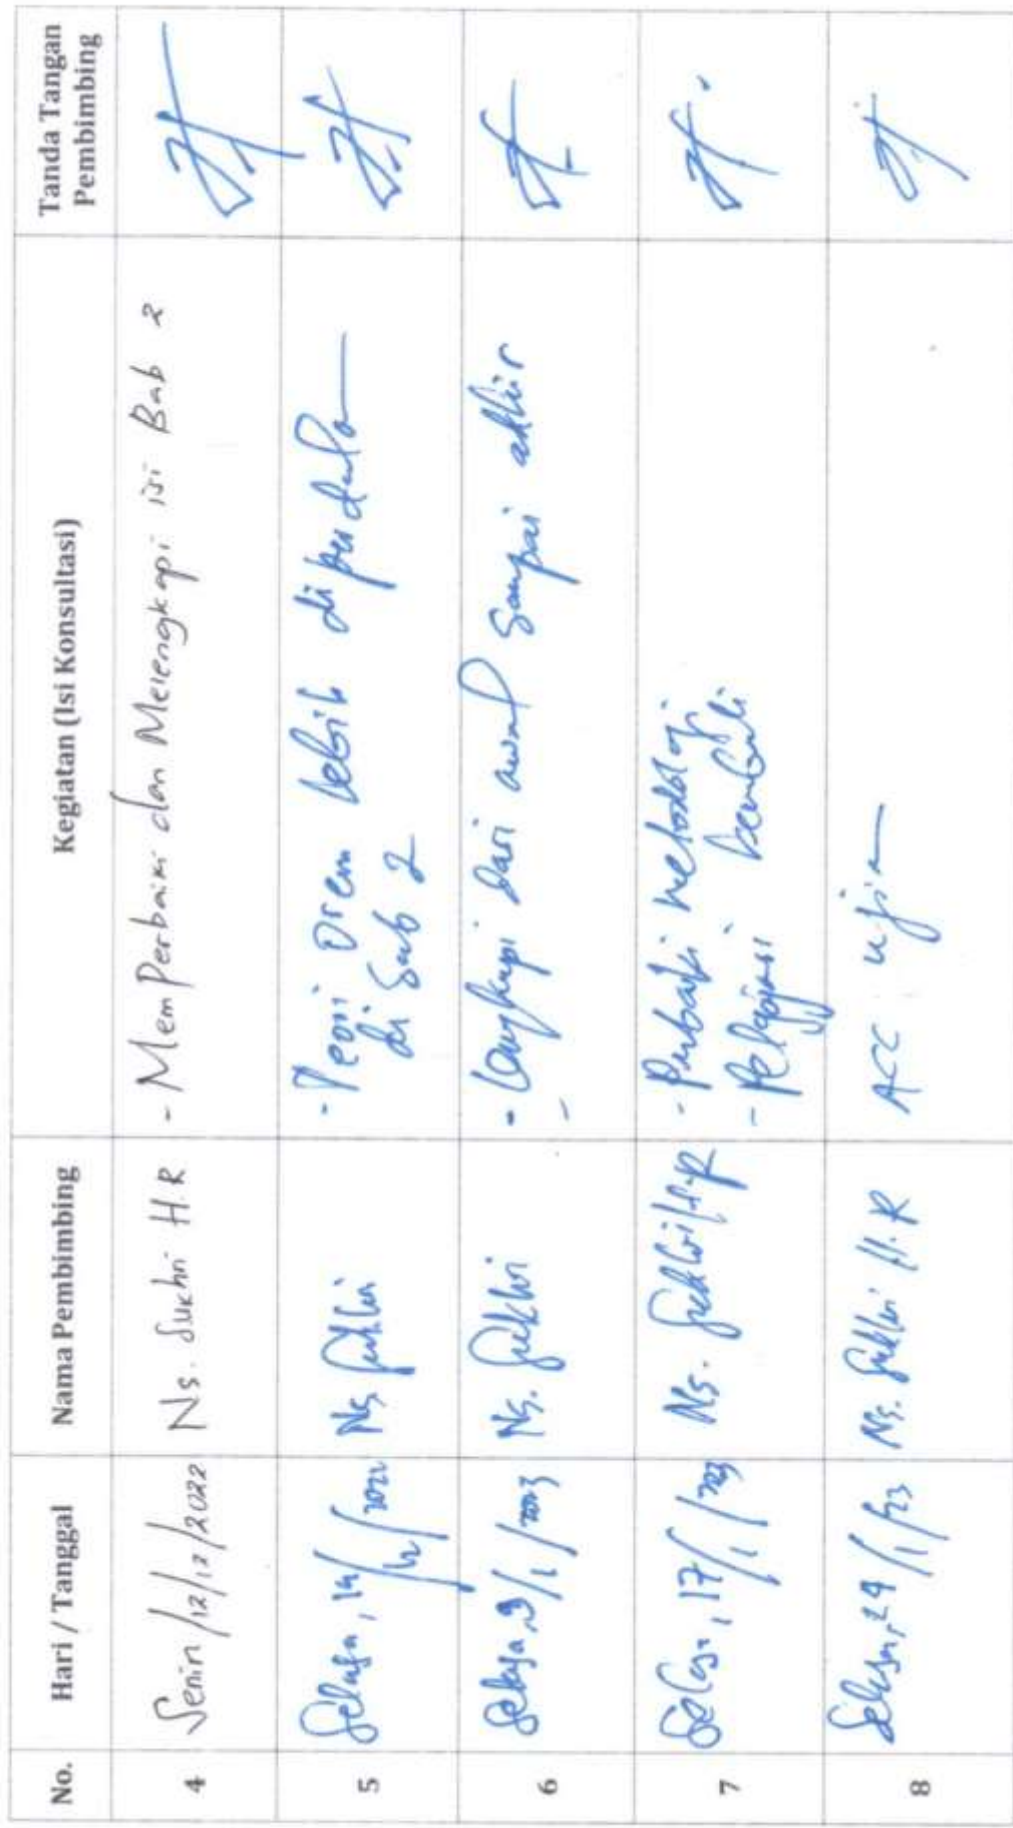 No. Hari / Tanggal Nama Pembimbing Kegiatan (Isi Konsultasi) Tanda Tangan Pembimbing
4 Senin/12/12/2022 Ns. Sukhri H.R - MemPerbaiki dan Melengkapi isi Bab 2
5 Selasa, 14/12/2022 Ns. Sukhri - Teori Orem lebih diperdala
di bab 2
6 Selasa, 9/1/2023 Ns. Sukhri - Lengkapi dari awal sampai akhir
-
7 Selasa, 17/1/2023 Ns. Sukhri H.R - Perbaiki metodologi
- Pelajari kembali
8 Selasa, 24/1/23 Ns. Sukhri H.R ACC ujian